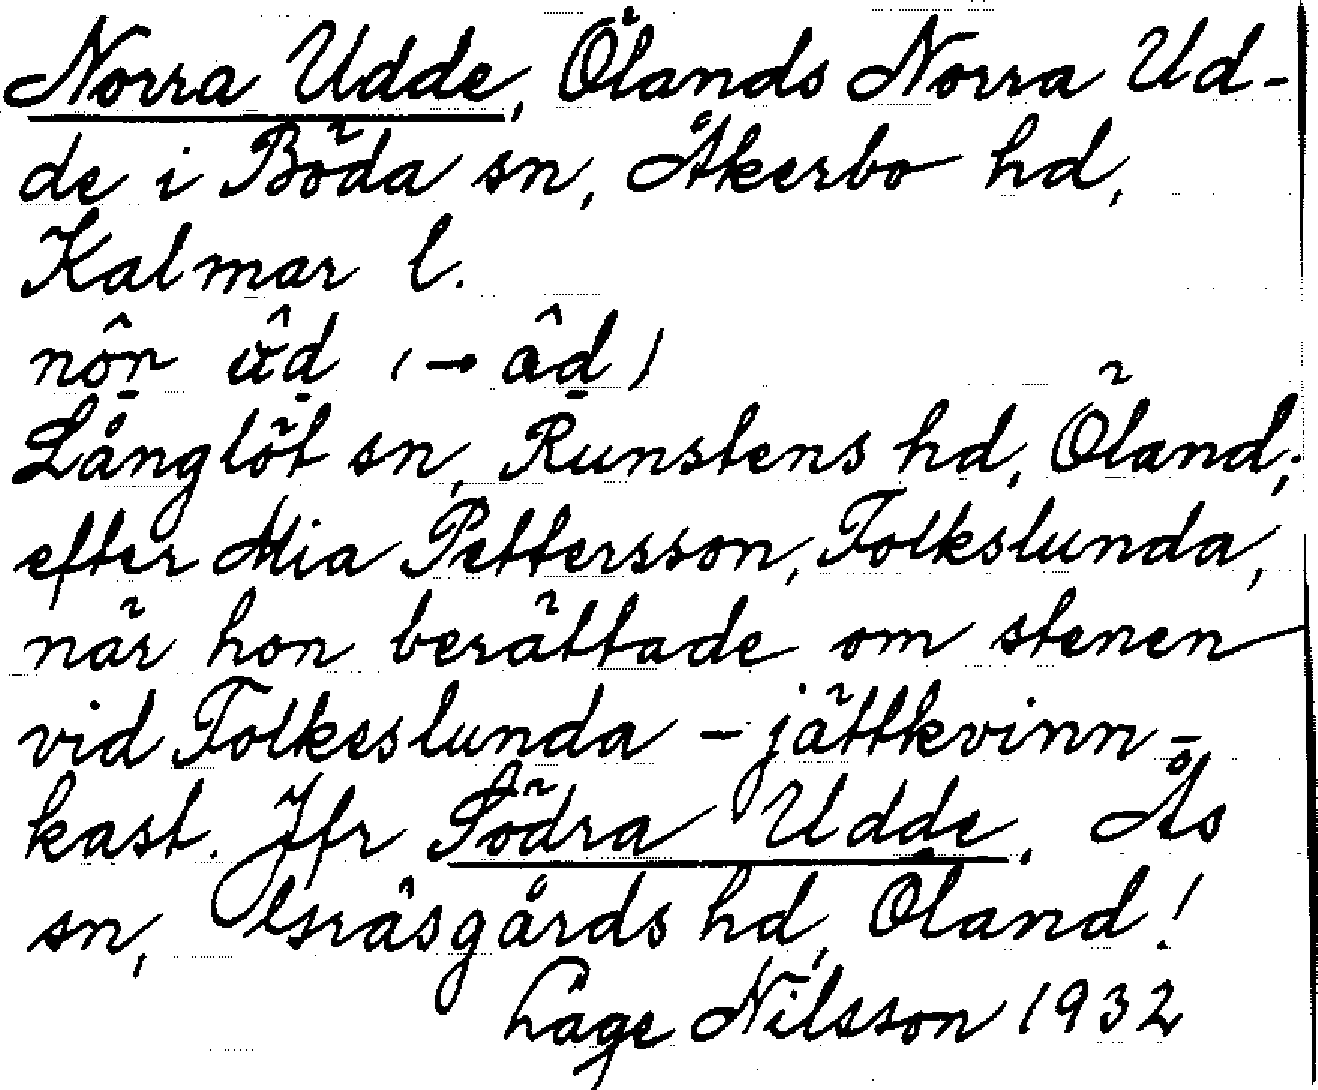 Norra Udde, Ölands Norra Ud-
de i Böda sn, Åkerbo hd,
Kalmar l.
nôr
Långlöt sn, Runstens hd, Öland;
efter Mia Pettersson, Folkslunda,
när hon berättade om stenen
vid Folkeslunda - jättkvinn-
kast. Jfr Södra Udde, Ås
sn, Gräsgårds hd, Öland!
Lage Nilsson 1932